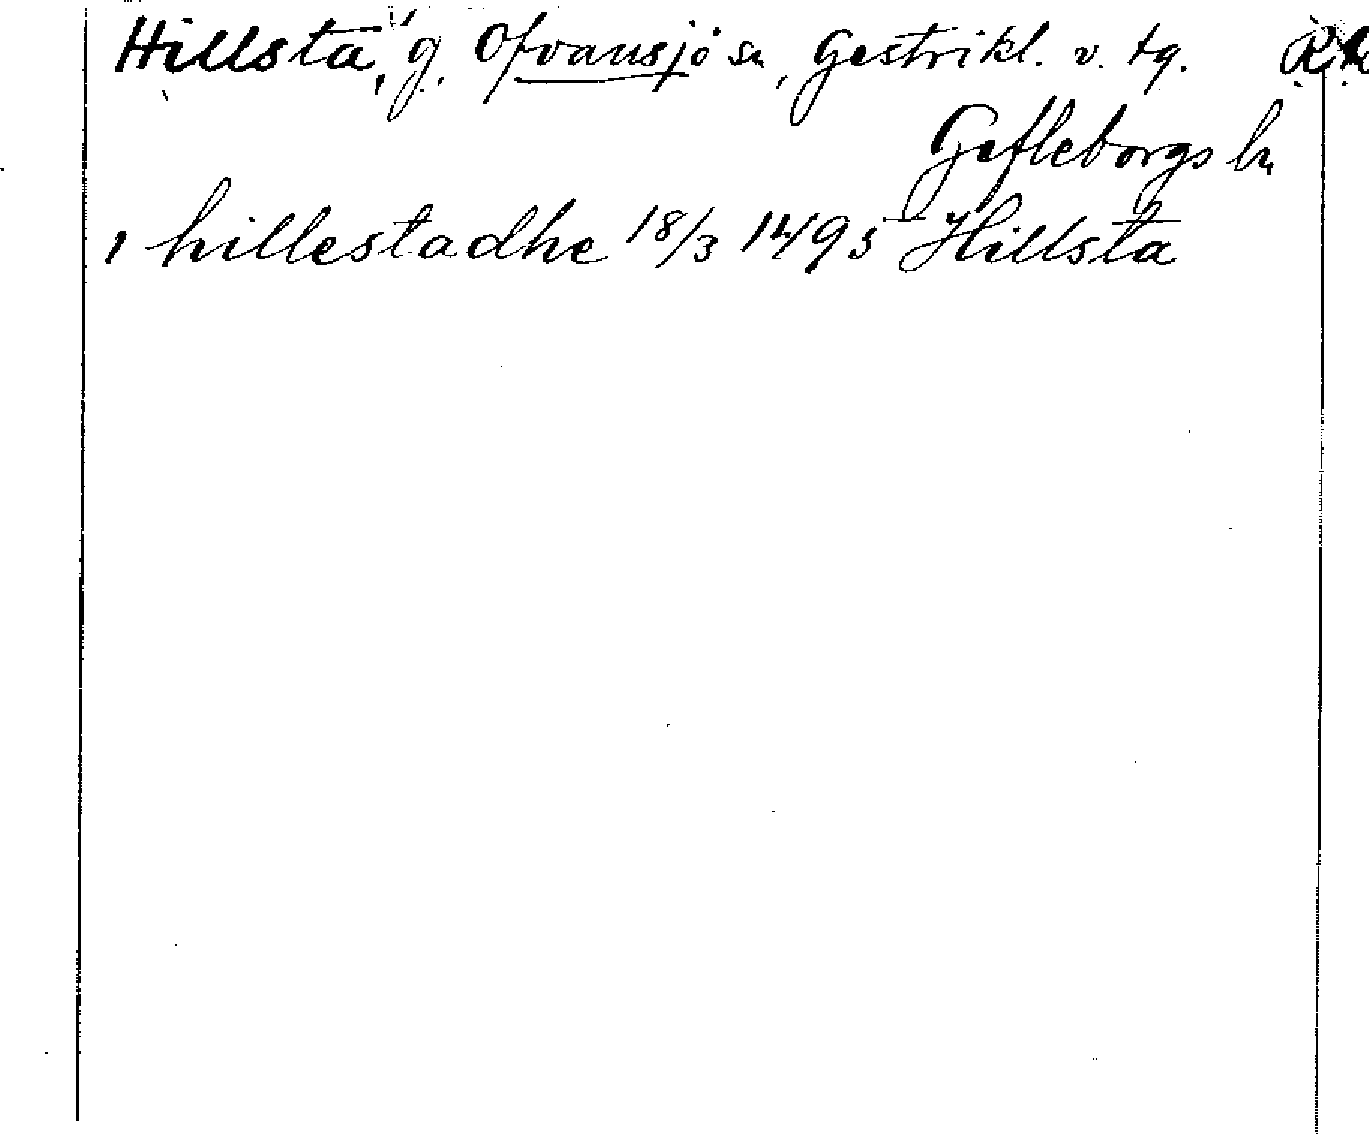 Hillsta, g. Ofvansjö sn, Gestrikl. v. tg.
Gefleborgs ln
i hillestadhe 18/3 1495 Hillsta